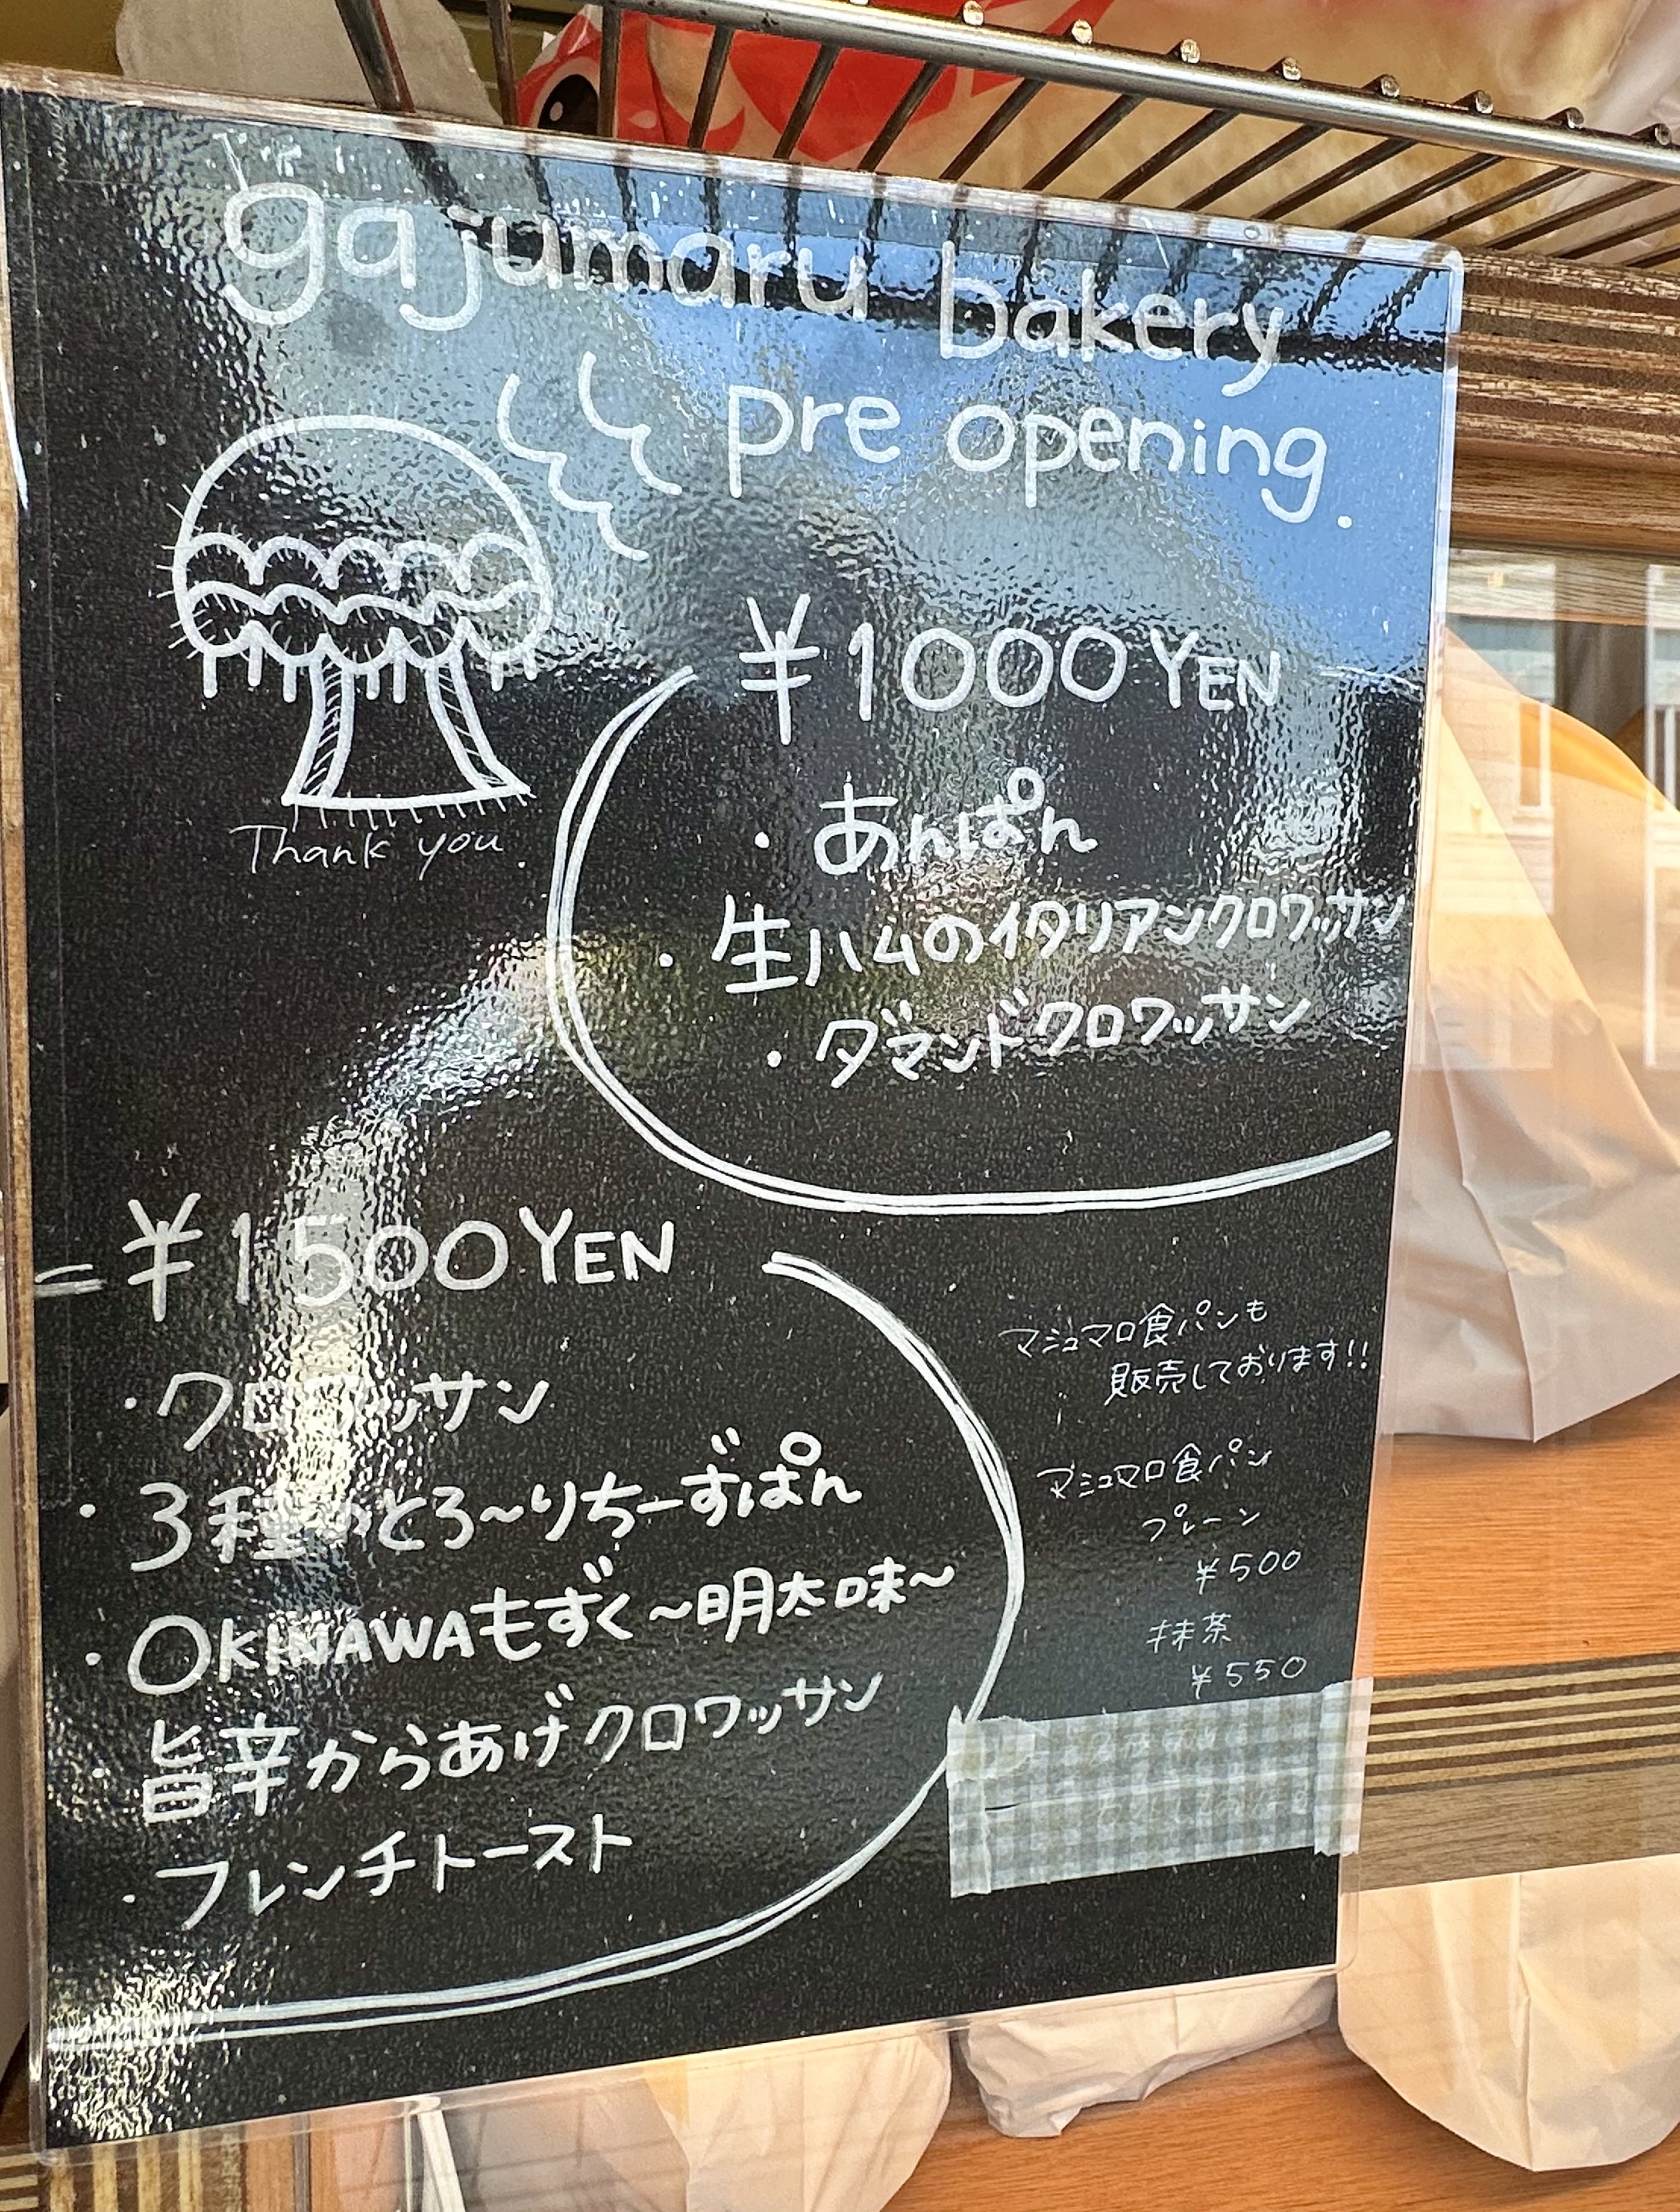 gajumaru bakery
pre opening.
Thank you.
¥1000 YEN
・あんぱん
・生ハムのイタリアンクロワッサン
・ダマンドクロワッサン
¥1500 YEN
・クロワッサン
・3種のとろ〜りちーずぱん
・OKINAWAもずく〜明太味〜
旨辛からあげクロワッサン
・フレンチトースト
マシュマロ食パンも
販売しております!!
マシュマロ食パン
プレーン
¥500
抹茶
¥550